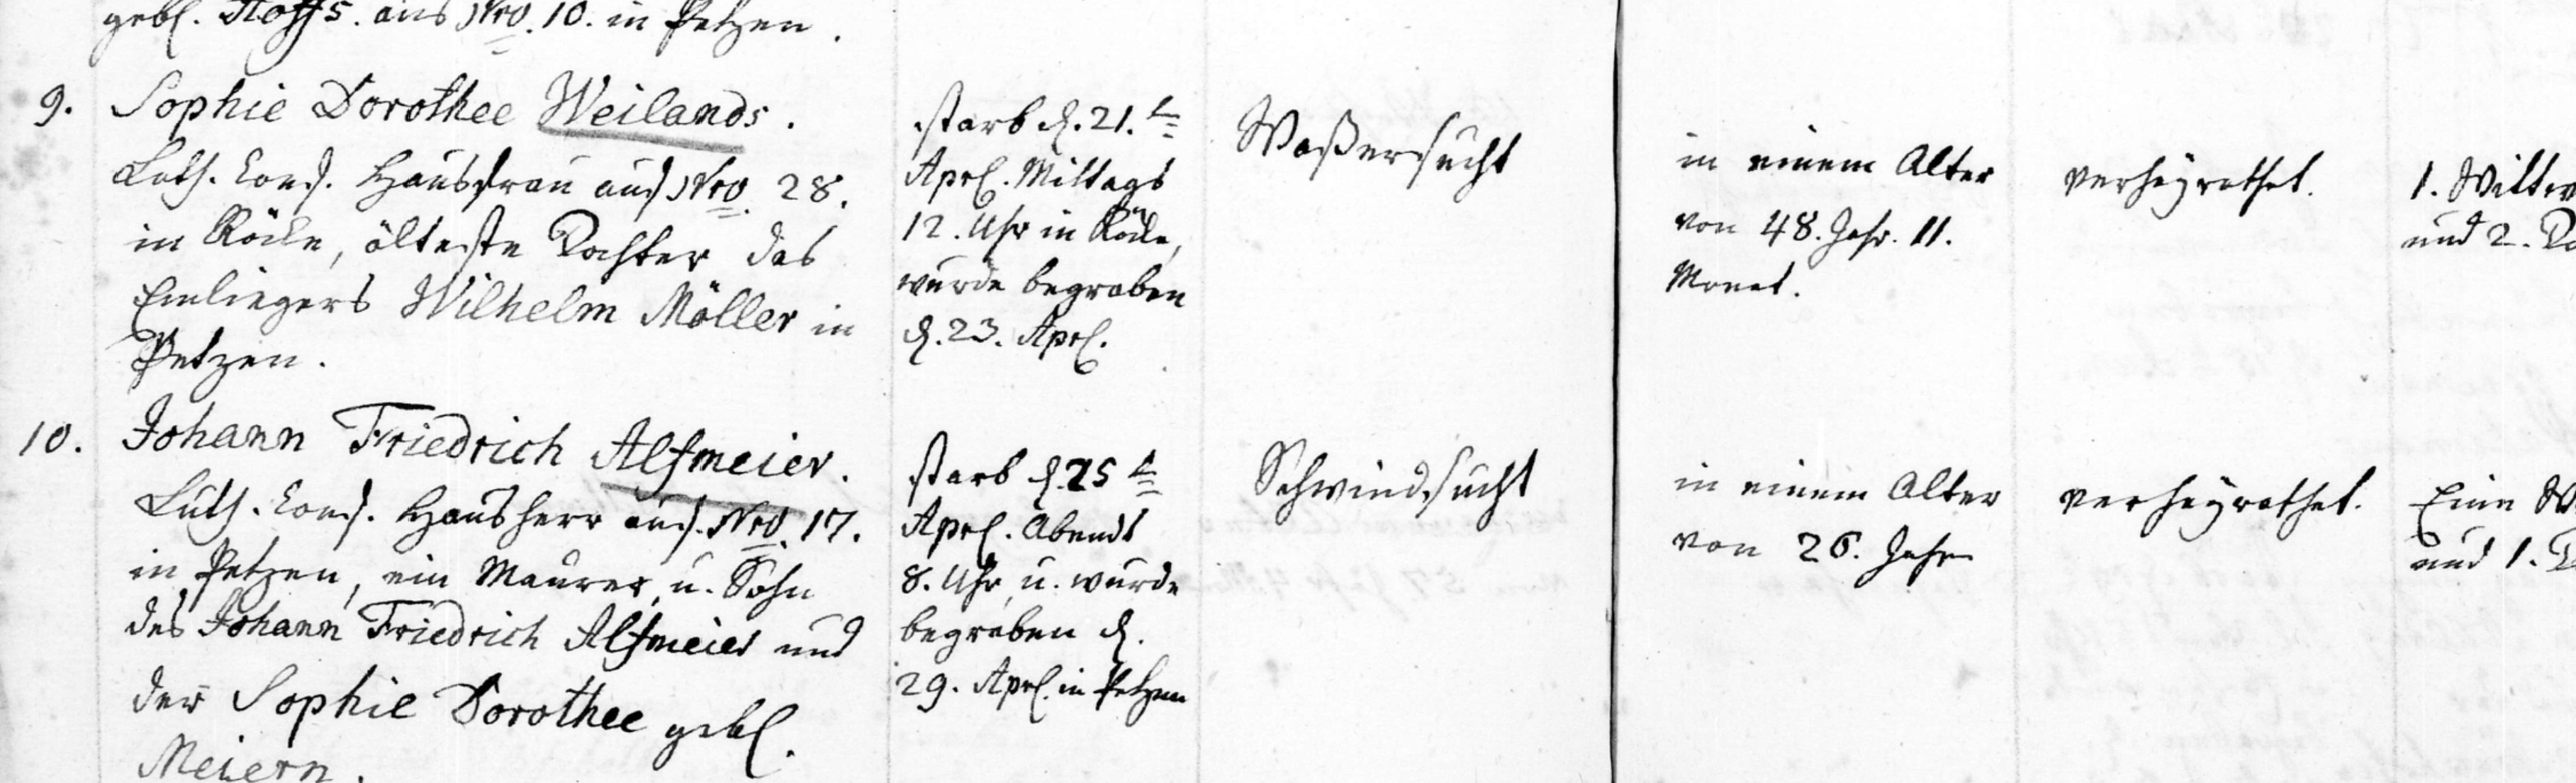 gebl. Hoffs. aus Nro. 10. in Petzen.
9.
Sophie Dorothee Weilands.
Luth. Conf. Hausfrau aus Nro. 28.
in Röcke, älteste Tochter des
Einliegers Wilhelm Möller in
Petzen.
starb d. 21.
Aprl. Mittags
12. Uhr in Röcke,
wurde begraben
d. 23. Aprl.
Waßersucht
in einem Alter
von 48. Jahr. 11.
Monat.
verheyrathet.
1. Wittw
und 2. To
10.
Johann Friedrich Alfmeier.
Luth. Conf. Hausherr aus Nro. 17.
in Petzen, ein Maurer, u. Sohn
des Johann Friedrich Alfmeier und
der Sophie Dorothee gebl.
Meiern.
starb d. 25
Aprl. Abends
8. Uhr, u. wurde
begraben d.
29. Aprl. in Petzen
Schwindsucht
in einem Alter
von 26. Jahr
verheyrathet.
Eine W
und 1. T